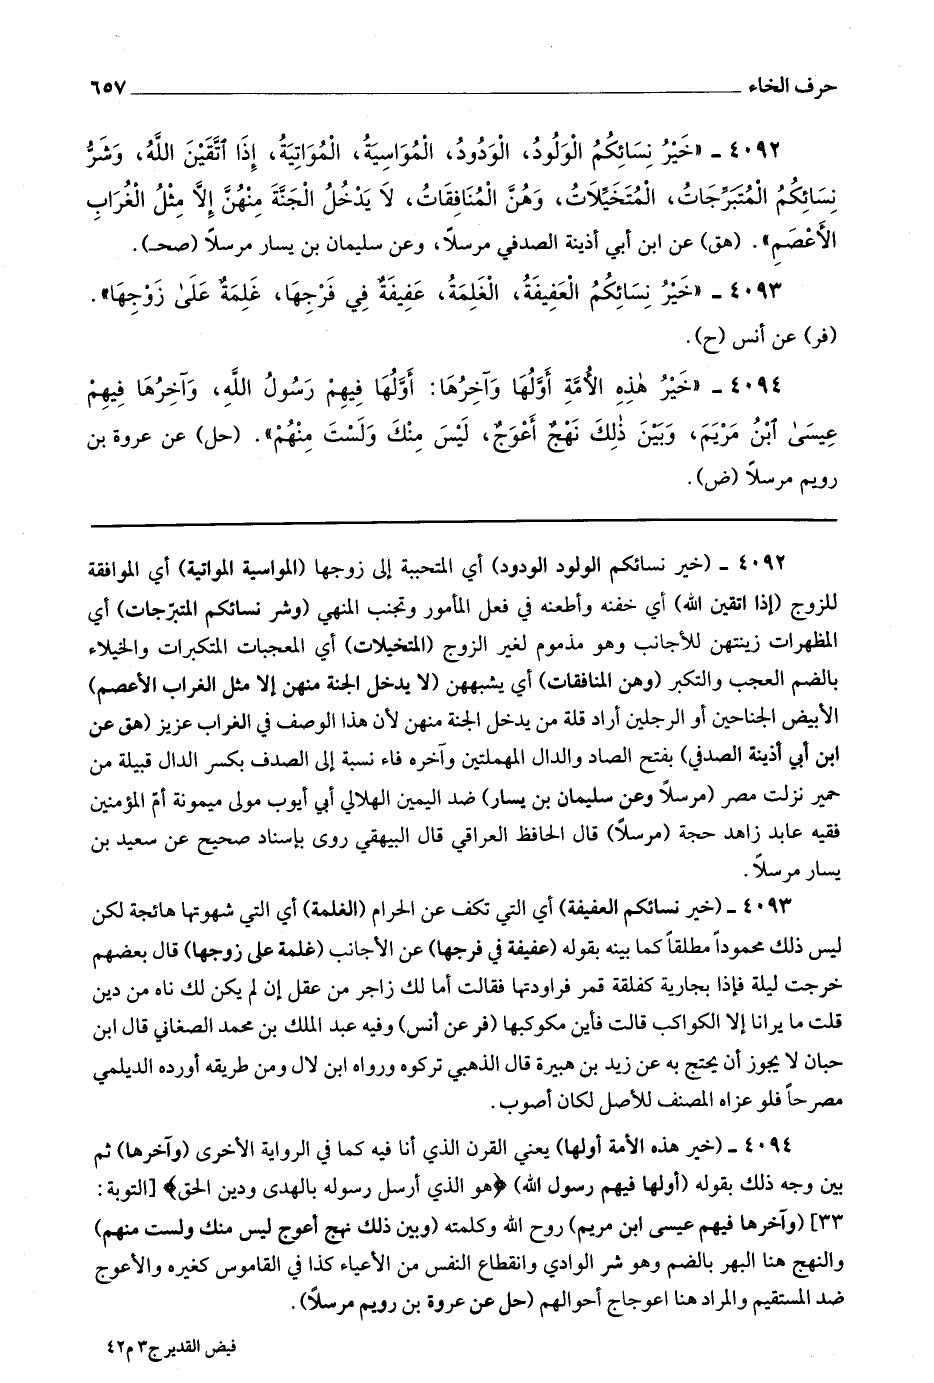 حرف الخاء ٦٥٧
٤٠٩٢ ـ «خَيْرُ نِسَائِكُمُ الْوَلُودُ، الْوَدُودُ، الْمُوَاسِيَةُ، الْمُوَاتِيَةُ، إِذَا ٱتَّقَيْنَ اللَّهَ، وَشَرُّ
نِسَائِكُمُ الْمُتَبَرِّجَاتُ، الْمُتَخَيِّلَاتُ، وَهُنَّ الْمُنَافِقَاتُ، لاَ يَدْخُلُ الْجَنَّةَ مِنْهُنَّ إِلاَّ مِثْلُ الْغُرَابِ
الْأَعْصَمِ». (هق) عن ابن أبي أذينة الصدفي مرسلاً، وعن سليمان بن يسار مرسلاً (صحـ).
٤٠٩٣ ـ «خَيْرُ نِسَائِكُمُ الْعَفِيفَةُ، الْغَلِمَةُ، عَفِيفَةٌ فِي فَرْجِهَا، غَلِمَةٌ عَلَىٰ زَوْجِهَا».
(فر) عن أنس (ح).
٤٠٩٤ ـ «خَيْرُ هٰذِهِ الأُمَّةِ أَوَّلُهَا وَآخِرُهَا: أَوَّلُهَا فِيهِمْ رَسُولُ اللَّهِ، وَآخِرُهَا فِيهِمْ
عِيسَىٰ ٱبْنُ مَرْيَمَ، وَبَيْنَ ذٰلِكَ نَهْجٌ أَعْوَجُ، لَيْسَ مِنْكَ وَلَسْتَ مِنْهُمْ». (حل) عن عروة بن
رويم مرسلاً (ض).
٤٠٩٢ ـ (خير نسائكم الولود الودود) أي المتحببة إلى زوجها (المواسية المواتية) أي الموافقة
للزوج (إذا اتقين الله) أي خفنه وأطعنه في فعل المأمور وتجنب المنهي (وشر نسائكم المتبرّجات) أي
المظهرات زينتهن للأجانب وهو مذموم لغير الزوج (المتخيلات) أي المعجبات المتكبرات والخيلاء
بالضم العجب والتكبر (وهن المنافقات) أي يشبههن (لا يدخل الجنة منهن إلا مثل الغراب الأعصم)
الأبيض الجناحين أو الرجلين أراد قلة من يدخل الجنة منهن لأن هذا الوصف في الغراب عزيز (هق عن
ابن أبي أذينة الصدفي) بفتح الصاد والدال المهملتين وآخره فاء نسبة إلى الصدف بكسر الدال قبيلة من
حمير نزلت مصر (مرسلاً وعن سليمان بن يسار) ضد اليمين الهلالي أبي أيوب مولى ميمونة أمّ المؤمنين
فقيه عابد زاهد حجة (مرسلاً) قال الحافظ العراقي قال البيهقي روى بإسناد صحيح عن سعيد بن
يسار مرسلاً.
٤٠٩٣ ـ (خير نسائكم العفيفة) أي التي تكف عن الحرام (الغلمة) أي التي شهوتها هائجة لكن
ليس ذلك محموداً مطلقاً كما بينه بقوله (عفيفة في فرجها) عن الأجانب (غلمة على زوجها) قال بعضهم
خرجت ليلة فإذا بجارية كفلقة قمر فراودتها فقالت أما لك زاجر من عقل إن لم يكن لك ناه من دين
قلت ما يرانا إلا الكواكب قالت فأين مكوكبها (فر عن أنس) وفيه عبد الملك بن محمد الصغاني قال ابن
حبان لا يجوز أن يحتج به عن زيد بن هبيرة قال الذهبي تركوه ورواه ابن لال ومن طريقه أورده الديلمي
مصرحاً فلو عزاه المصنف للأصل لكان أصوب.
٤٠٩٤ ـ (خير هذه الأمة أولها) يعني القرن الذي أنا فيه كما في الرواية الأخرى (وآخرها) ثم
بين وجه ذلك بقوله (أولها فيهم رسول الله) ﴿هو الذي أرسل رسوله بالهدى ودين الحق﴾ [التوبة:
٣٣] (وآخرها فيهم عيسى ابن مريم) روح الله وكلمته (وبين ذلك نهج أعوج ليس منك ولست منهم)
والنهج هنا البهر بالضم وهو شر الوادي وانقطاع النفس من الأعياء كذا في القاموس كغيره والأعوج
ضد المستقيم والمراد هنا اعوجاج أحوالهم (حل عن عروة بن رويم مرسلاً).
فيض القدير ج٣ م٤٢